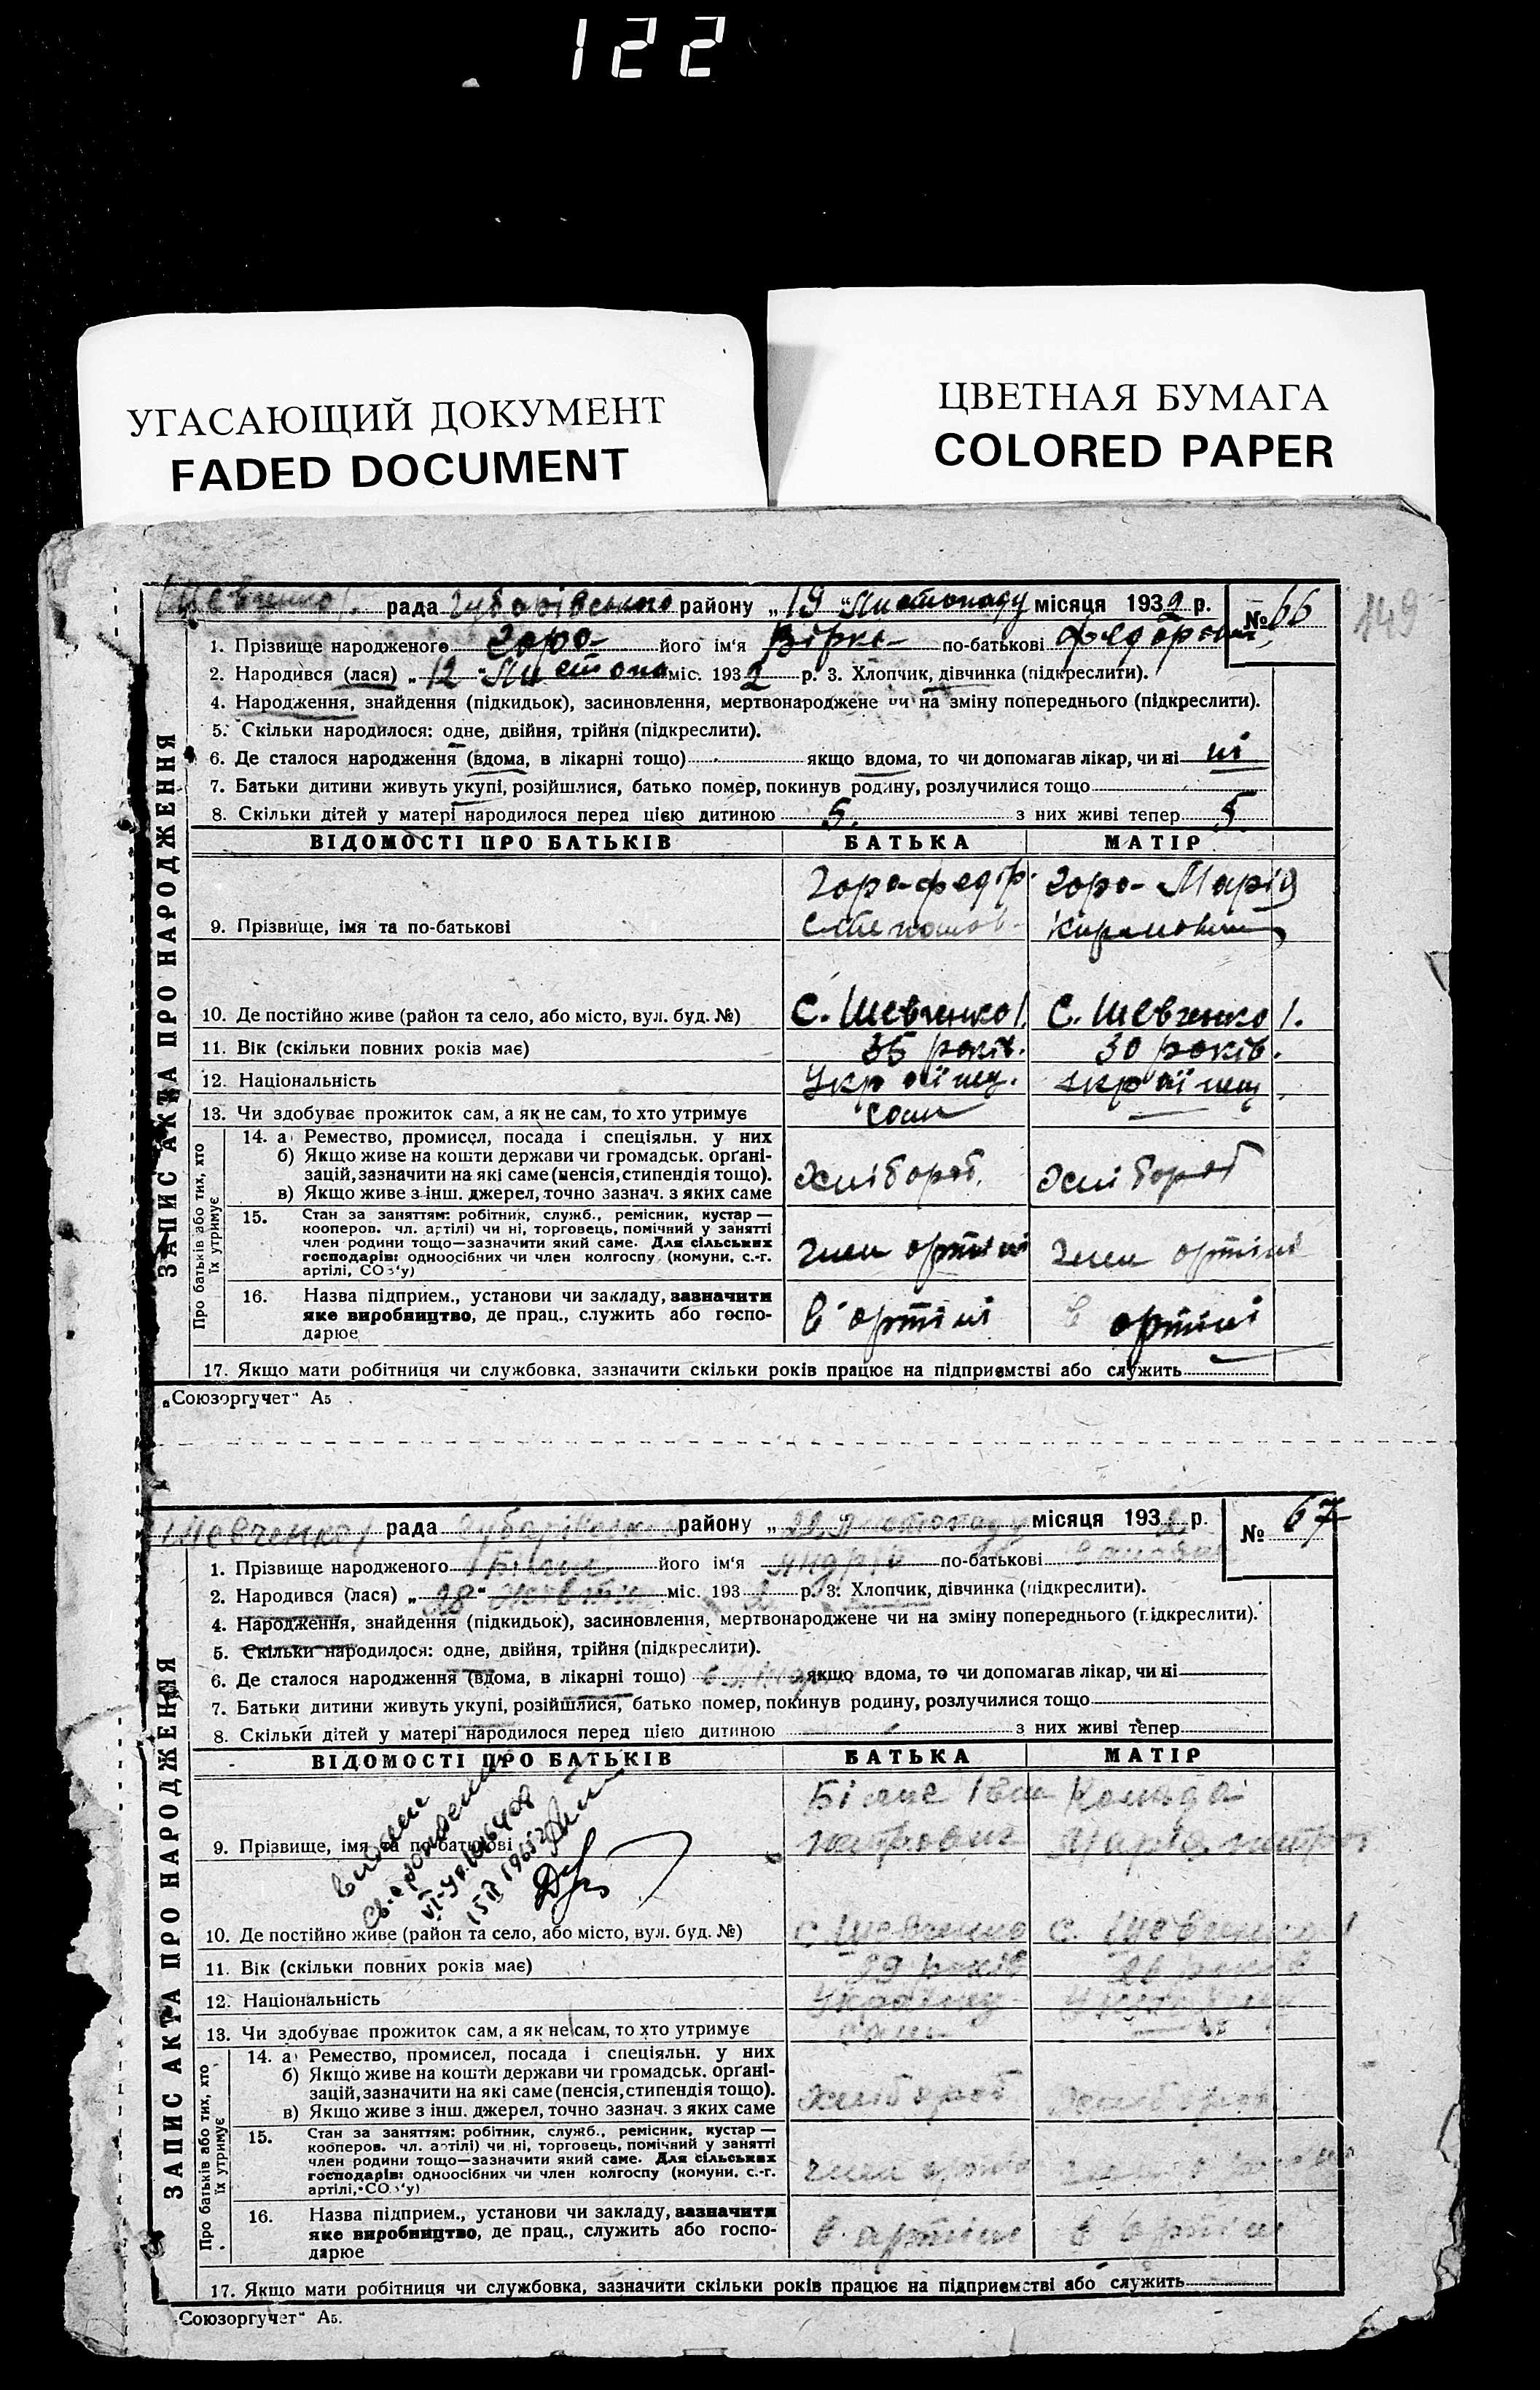 122
УГАСАЮЩИЙ ДОКУМЕНТ
FADED DOCUMENT
ЦВЕТНАЯ БУМАГА
COLORED PAPER
149
ЗАПИС АКТА ПРО НАРОДЖЕННЯ
рада району „19" Листопаду місяця 1932 р. № 66
1. Прізвище народженого Гора його ім'я Вірка по-батькові
2. Народився (лася) „12" Листопа міс. 1932 р. 3. Хлопчик, дівчинка (підкреслити).
4. Народження, знайдення (підкидьок), засиновлення, мертвонароджене чи на зміну попереднього (підкреслити).
5. Скільки народилося: одне, двійня, трійня (підкреслити).
6. Де сталося народження (вдома, в лікарні тощо) якщо вдома, то чи допомагав лікар, чи ні ні
7. Батьки дитини живуть укупі, розійшлися, батько помер, покинув родину, розлучилися тощо
8. Скільки дітей у матері народилося перед цією дитиною 5. з них живі тепер 5
ВІДОМОСТІ ПРО БАТЬКІВ БАТЬКА МАТІР
Гора Федір. Гора Марія
9. Прізвище, імя та по-батькові
10. Де постійно живе (район та село, або місто, вул. буд. №) С. Шевченко 1. С. Шевченко 1.
11. Вік (скільки повних років має) 35 років. 30 років.
12. Національність Українц. Українец
13. Чи здобуває прожиток сам, а як не сам, то хто утримує сам
Про батьків або тих, хто їх утримує
14. а) Ремество, промисел, посада і спеціяльн. у них
б) Якщо живе на кошти держави чи громадськ. орґані-
зацій, зазначити на які саме (пенсія, стипендія тощо). Хлібороб. Хлібороб
в) Якщо живе з інш. джерел, точно зазнач. з яких саме
15. Стан за заняттям: робітник, служб., ремісник, кустар —
кооперов. чл. артілі) чи ні, торговець, помічний у занятті
член родини тощо—зазначити який саме. Для сільських
господарів: одноосібних чи член колгоспу (комуни, с.-г. член артілі член артілі
артілі, СОЗ'у)
16. Назва підприєм., установи чи закладу, зазначити
яке виробництво, де прац., служить або госпо- в артілі в артілі
дарює
17. Якщо мати робітниця чи службовка, зазначити скільки років працює на підприємстві або служить
„Союзоргучет" А5
ЗАПИС АКТА ПРО НАРОДЖЕННЯ
Шевченко 1 рада району „22" Листопаду місяця 1932 р. № 67
1. Прізвище народженого Білик його ім'я Андрій по-батькові
2. Народився (лася) „28" Жовтн міс. 1932 р. 3. Хлопчик, дівчинка (підкреслити).
4. Народження, знайдення (підкидьок), засиновлення, мертвонароджене чи на зміну попереднього (підкреслити).
5. Скільки народилося: одне, двійня, трійня (підкреслити).
6. Де сталося народження (вдома, в лікарні тощо) якщо вдома, то чи допомагав лікар, чи ні
7. Батьки дитини живуть укупі, розійшлися, батько помер, покинув родину, розлучилися тощо
8. Скільки дітей у матері народилося перед цією дитиною з них живі тепер
ВІДОМОСТІ ПРО БАТЬКІВ БАТЬКА МАТІР
Іван
9. Прізвище, імя та по-батькові Марія
10. Де постійно живе (район та село, або місто, вул. буд. №) С. Шевченко С. Шевченко 1
11. Вік (скільки повних років має) 29 років 26 років
12. Національність Українец
13. Чи здобуває прожиток сам, а як не сам, то хто утримує сам
Про батьків або тих, хто їх утримує
14. а) Ремество, промисел, посада і спеціяльн. у них
б) Якщо живе на кошти держави чи громадськ. орґані-
зацій, зазначити на які саме (пенсія, стипендія тощо). Хлібороб Хлібороб
в) Якщо живе з інш. джерел, точно зазнач. з яких саме
15. Стан за заняттям: робітник, служб., ремісник, кустар —
кооперов. чл. артілі) чи ні, торговець, помічний у занятті
член родини тощо—зазначити який саме. Для сільських
господарів: одноосібних чи член колгоспу (комуни, с.-г. член артіл
артілі, СОЗ'у)
16. Назва підприєм., установи чи закладу, зазначити
яке виробництво, де прац., служить або госпо- в артілі в артілі
дарює
17. Якщо мати робітниця чи службовка, зазначити скільки років працює на підприємстві або служить
„Союзоргучет" А5.